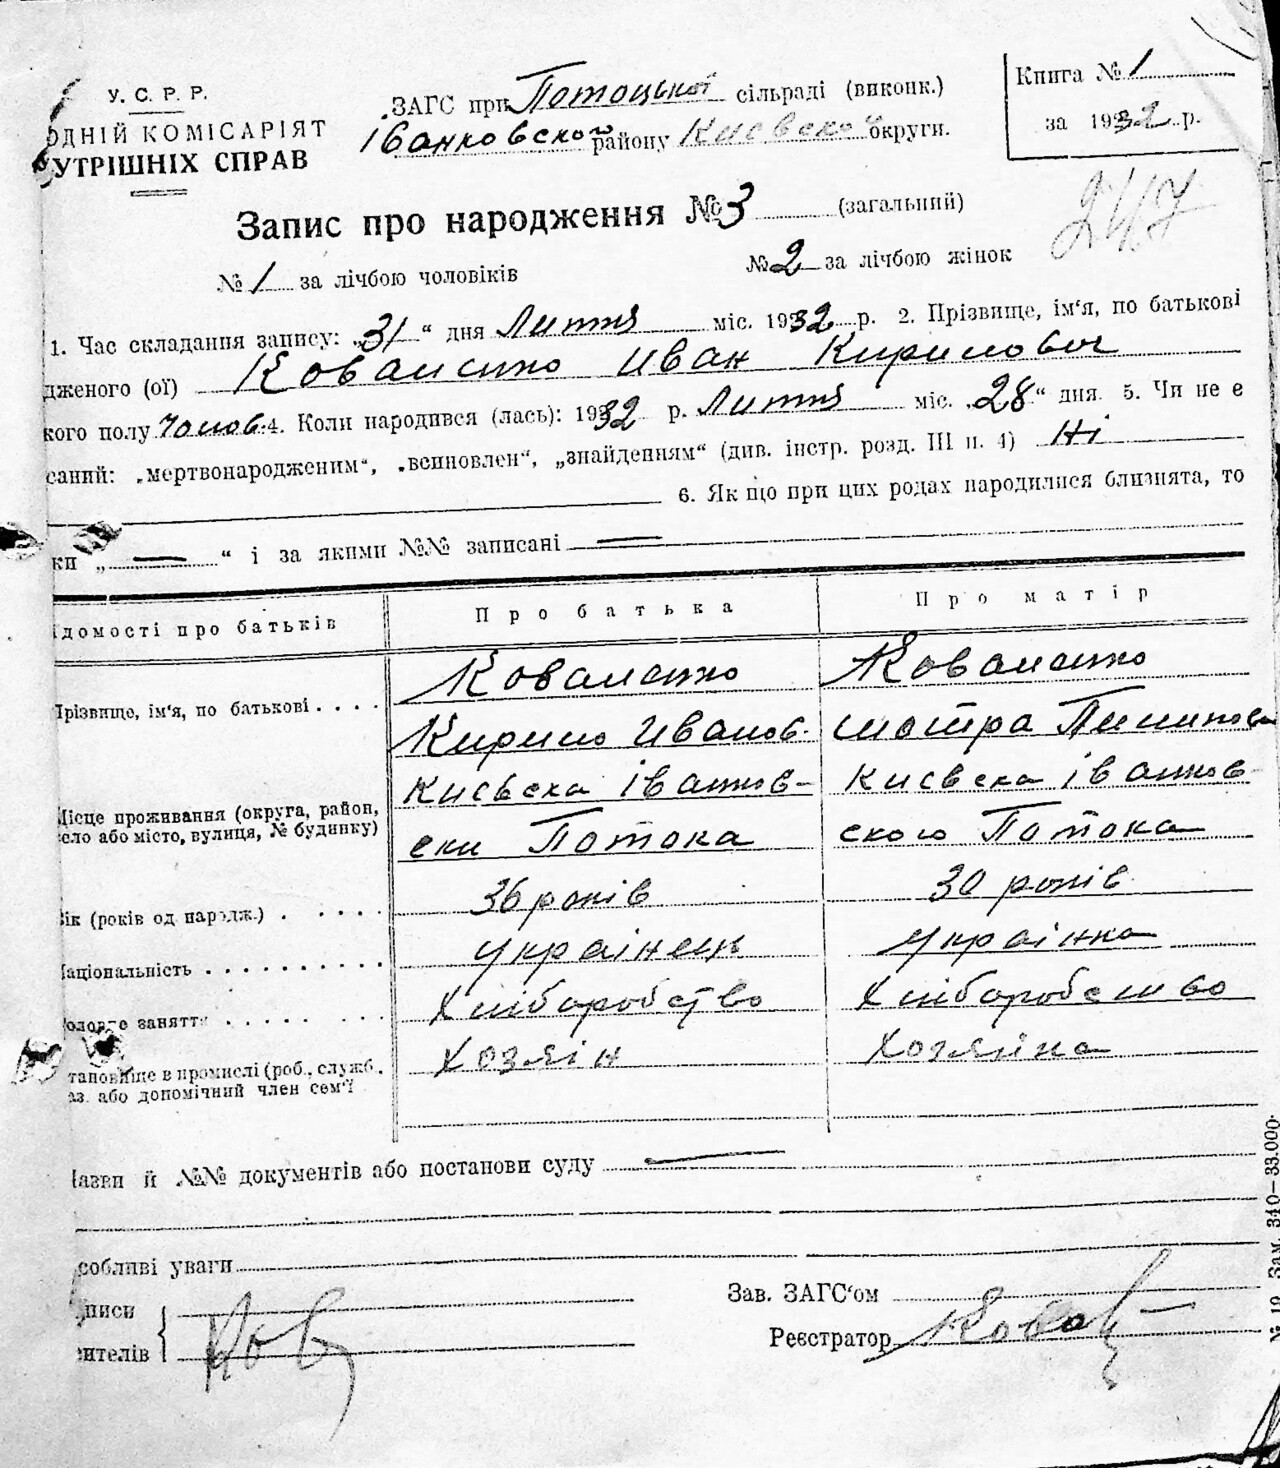 У. С. Р. Р.
ОДНІЙ КОМІСАРІЯТ
УТРІШНІХ СПРАВ
ЗАГС при Потоцької сільраді (виконк.)
Іванковского району Киевской округи.
Книга № 1
за 1932 р.
Запис про народження № 3 (загальний)
247
№ 1 за лічбою чоловіків № 2 за лічбою жінок
1. Час складання запису: „31“ дня Лютня міс. 1932 р. 2. Прізвище, ім'я, по батькові
дженого (ої) Коваленко Иван Кирилович
кого полу Чолов. 4. Коли народився (лась): 1932 р. Лютня міс. „28“ дня. 5. Чи не є
саний: „мертвонародженим“, „всиновлен“, „знайденням“ (див. інстр. розд. III п. 4) Ні
6. Як що при цих родах народилися близнята, то
ки „ — “ і за якими №№ записані —
ідомості про батьків Про батька Про матір
Прізвище, ім'я, по батькові . . . . Коваленко Коваленко
Кирило Иванов.
Місце проживання (округа, район, Киевска Іванков- Киевска Іванков-
село або місто, вулиця, № будинку) ски Потока ского Потока
Вік (років од народж.) . . . . . 36 років 30 років
Національність . . . . . . . . . . українец українка
Головне заняття . . . . . . . . Хліборобство Хліборобство
тановище в промислі (роб., служб., Хозяін Хозяйка
аз. або допомічний член сем'ї
Назви й №№ документів або постанови суду —
собливі уваги
писи
ителів
Ков
Зав. ЗАГС'ом
Реєстратор
№ 19 Зам. 340—33.000.